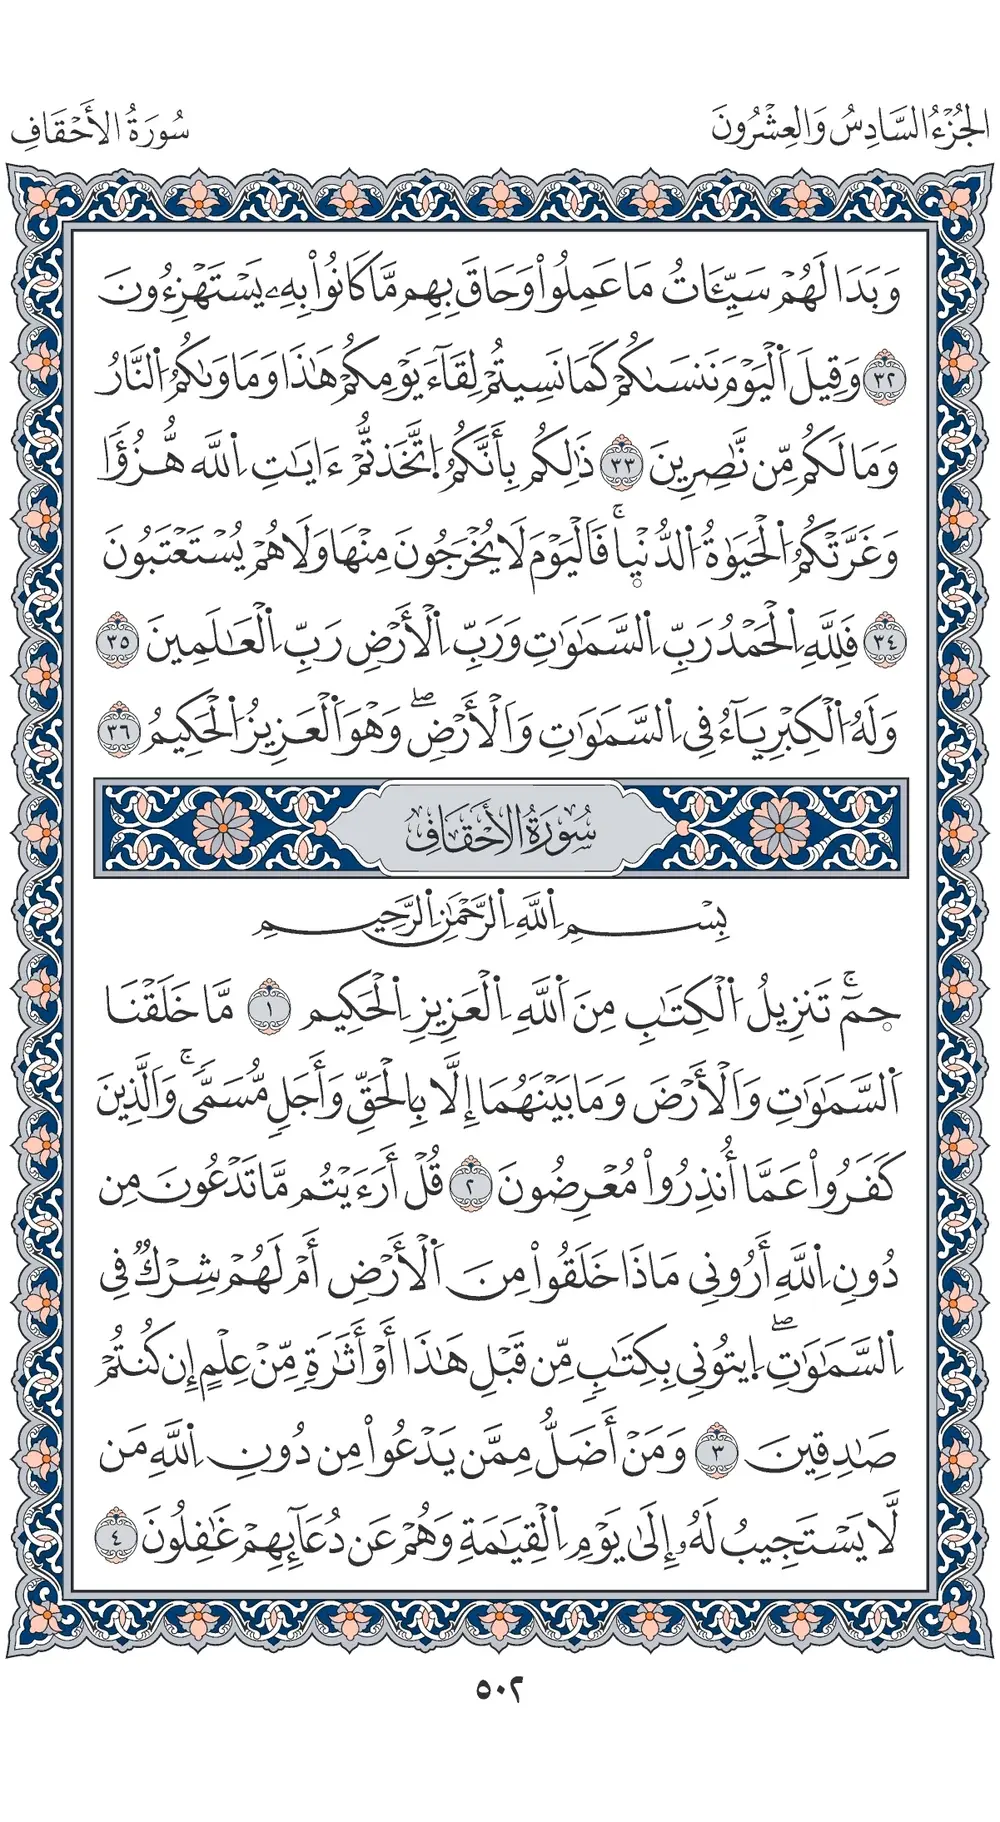 الجُزْءُ السَّادِسُ وَالعِشْرُونَ
سُورَةُ الأَحْقَافِ
وَبَدَا لَهُمْ سَيِّـَٔاتُ مَا عَمِلُواْ وَحَاقَ بِهِم مَّا كَانُواْ بِهِۦ يَسْتَهْزِءُونَ
٣٢ وَقِيلَ اَ۬لْيَوْمَ نَنسَىٰكُمْ كَمَا نَسِيتُمْ لِقَآءَ يَوْمِكُمْ هَٰذَا وَمَأْوَىٰكُمُ اُ۬لنَّارُ
وَمَا لَكُم مِّن نَّٰصِرِينَ ٣٣ ذَٰلِكُم بِأَنَّكُمُ اُ۪تَّخَذتُّمْ ءَايَٰتِ اِ۬للَّهِ هُزُؤٗا
وَغَرَّتْكُمُ اُ۬لْحَيَوٰةُ اُ۬لدُّنْيٜاۚ فَالْيَوْمَ لَا يُخْرَجُونَ مِنْهَا وَلَا هُمْ يُسْتَعْتَبُونَ
٣٤ فَلِلَّهِ اِ۬لْحَمْدُ رَبِّ اِ۬لسَّمَٰوَٰتِ وَرَبِّ اِ۬لْأَرْضِ رَبِّ اِ۬لْعَٰلَمِينَ ٣٥
وَلَهُ اُ۬لْكِبْرِيَآءُ فِي اِ۬لسَّمَٰوَٰتِ وَالْأَرْضِۖ وَهْوَ اَ۬لْعَزِيزُ اُ۬لْحَكِيمُ ٣٦
سُورَةُ الأَحْقَافِ
بِسْمِ اِ۬للَّهِ اِ۬لرَّحْمَٰنِ اِ۬لرَّحِيمِ
حٜمٓۚ تَنزِيلُ اُ۬لْكِتَٰبِ مِنَ اَ۬للَّهِ اِ۬لْعَزِيزِ اِ۬لْحَكِيمِ ١ مَا خَلَقْنَا
اَ۬لسَّمَٰوَٰتِ وَالْأَرْضَ وَمَا بَيْنَهُمَا إِلَّا بِالْحَقِّ وَأَجَلٖ مُّسَمّٗىۚ وَالَّذِينَ
كَفَرُواْ عَمَّا أُنذِرُواْ مُعْرِضُونَ ٢ قُلْ أَرَءَيْتُم مَّا تَدْعُونَ مِن
دُونِ اِ۬للَّهِ أَرُونِي مَاذَا خَلَقُواْ مِنَ اَ۬لْأَرْضِ أَمْ لَهُمْ شِرْكٞ فِي
اِ۬لسَّمَٰوَٰتِۖ اِ۪يتُونِي بِكِتَٰبٖ مِّن قَبْلِ هَٰذَا أَوْ أَثَٰرَةٖ مِّنْ عِلْمٍ إِن كُنتُمْ
صَٰدِقِينَ ٣ وَمَنْ أَضَلُّ مِمَّن يَدْعُواْ مِن دُونِ اِ۬للَّهِ مَن
لَّا يَسْتَجِيبُ لَهُۥ إِلَىٰ يَوْمِ اِ۬لْقِيَٰمَةِ وَهُمْ عَن دُعَآئِهِمْ غَٰفِلُونَ ٤
٥٠٢